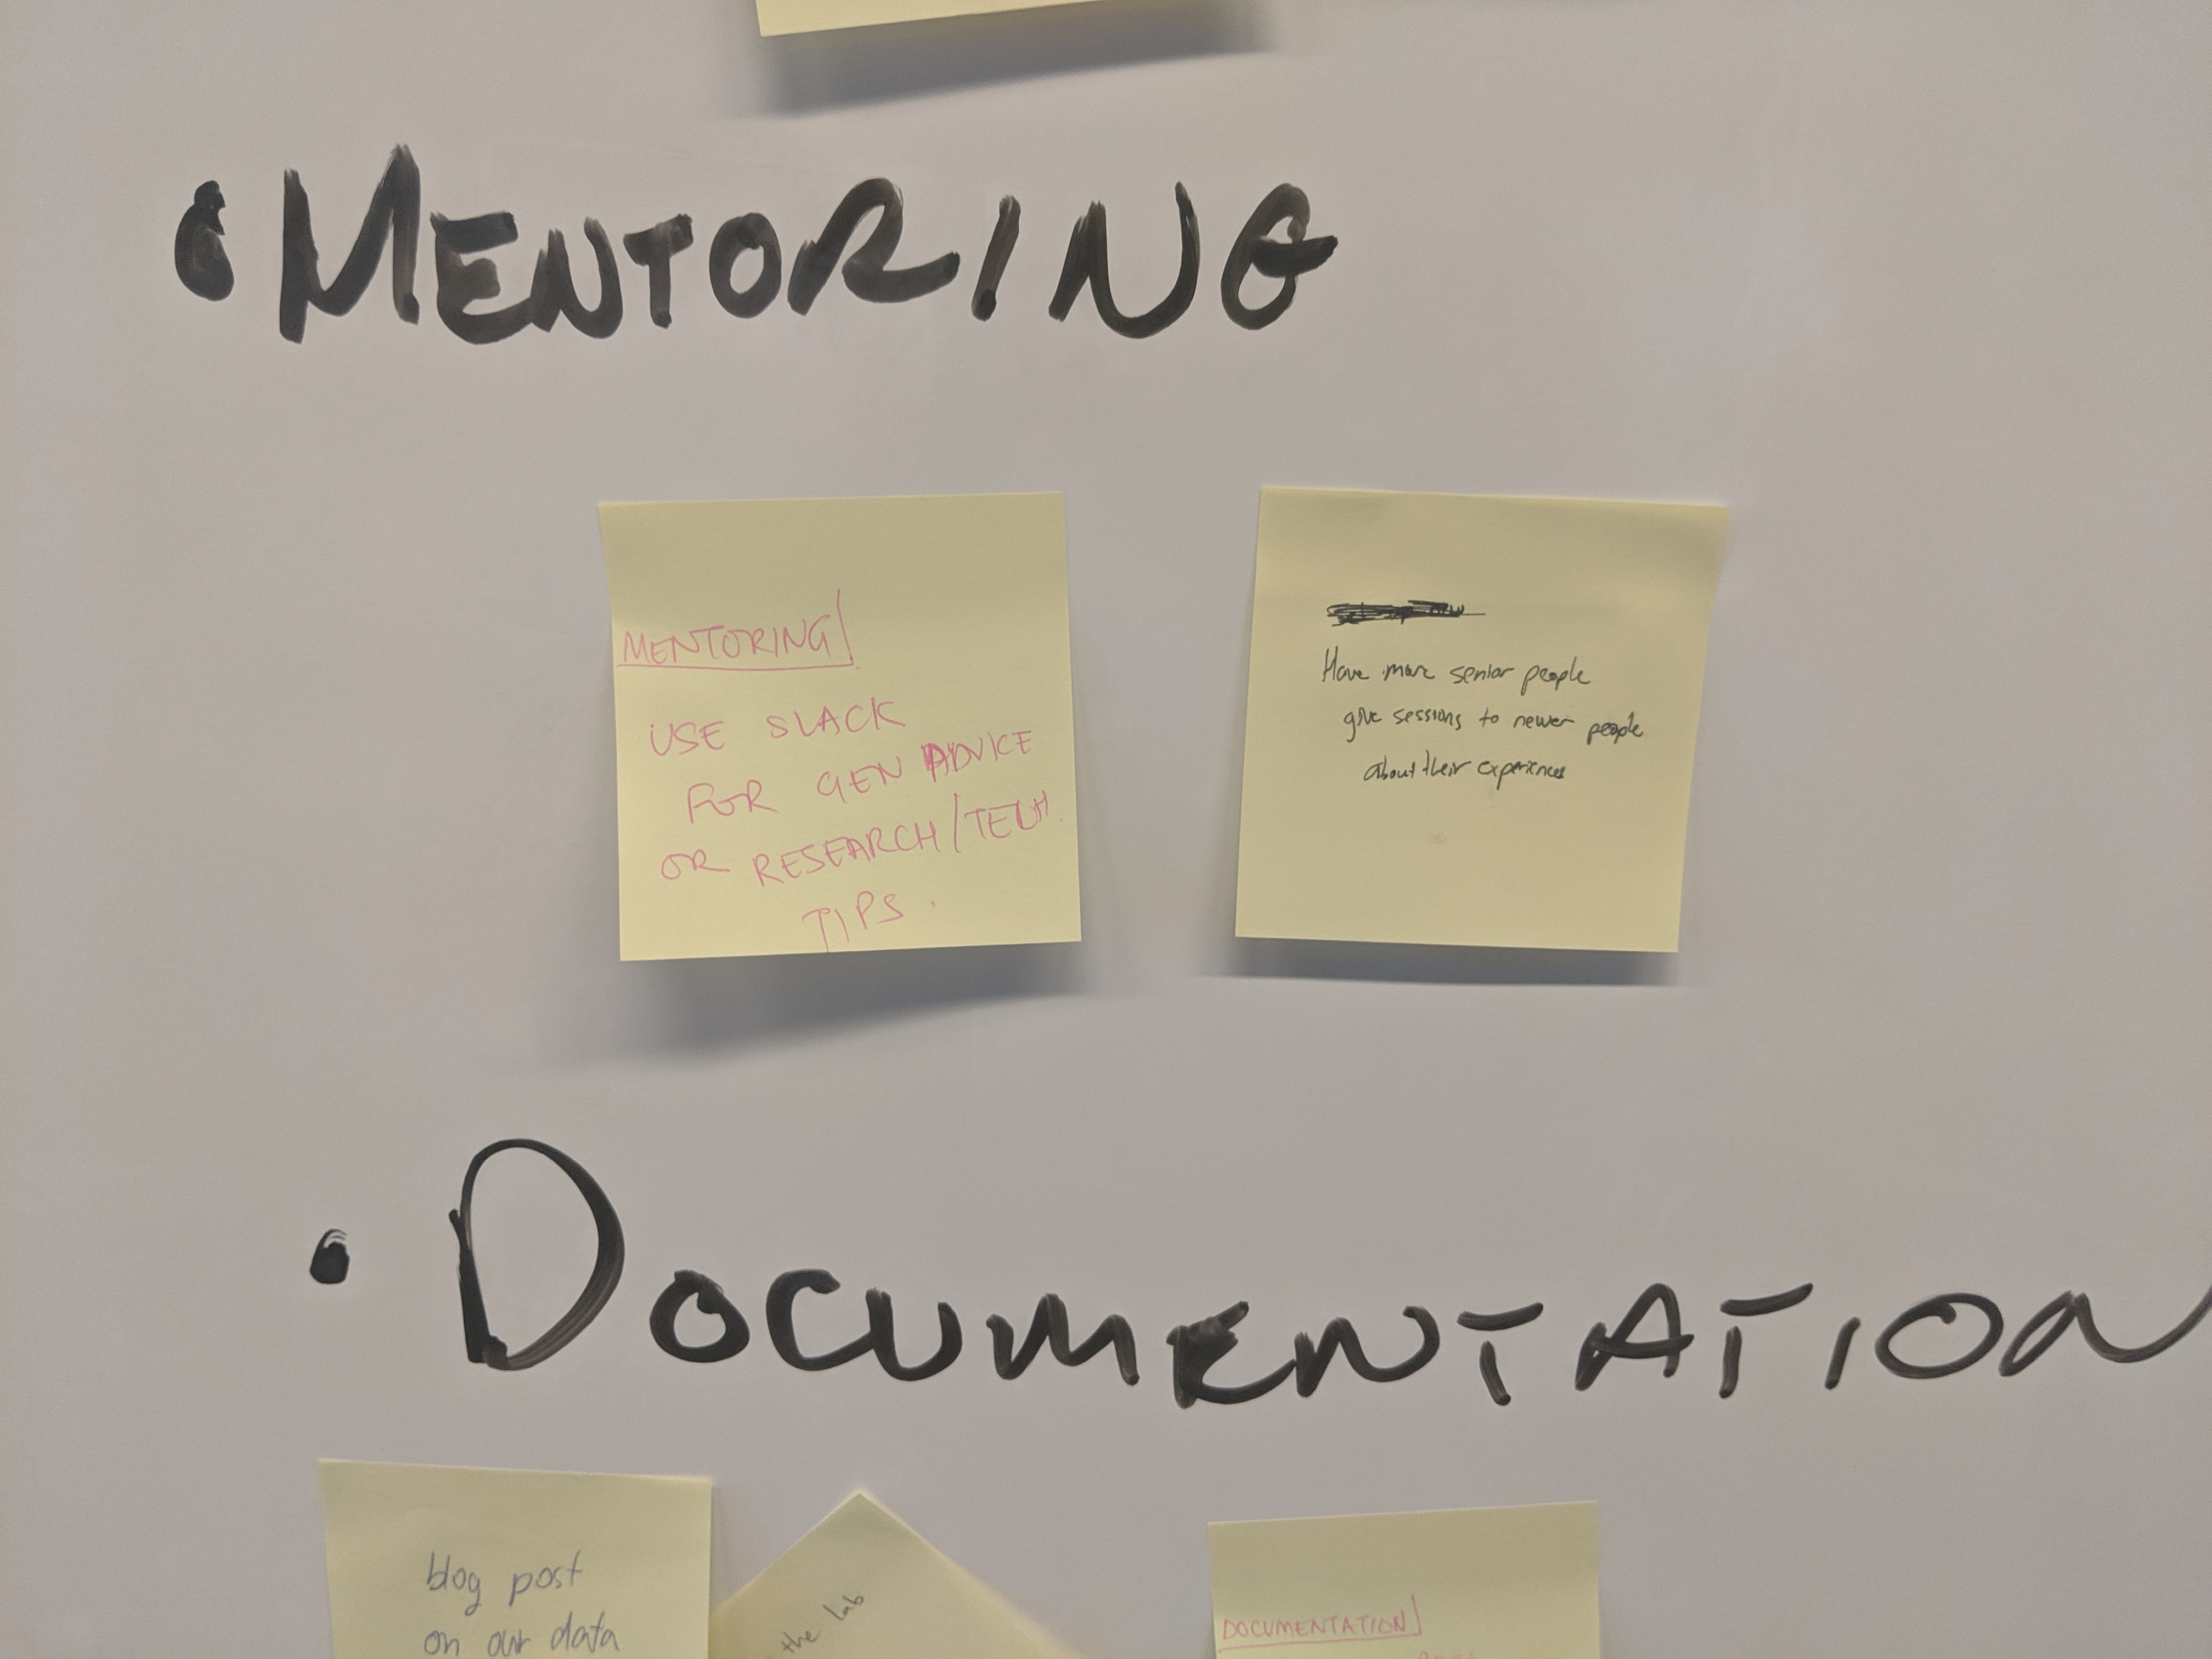 • MENTORING
MENTORING
USE SLACK
FOR GEN ADVICE
OR RESEARCH/TECH
TIPS.
Have more senior people
give sessions to newer people
about their experiences
• DOCUMENTATION
blog post
on our data
the lab
DOCUMENTATION